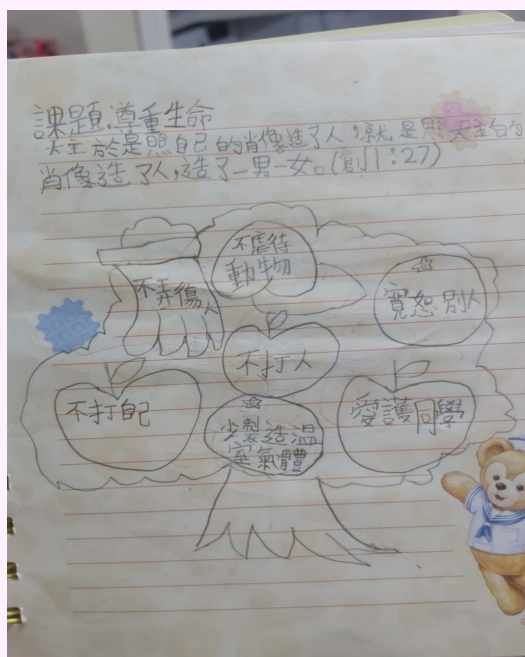 課題:尊重生命
天主於是照自己的肖像造了人,就是照天主的
肖像造了人,造了一男一女。(創1:27)
不虐待
動物
不弄傷
人
寬恕別人
不打人
不打自己
愛護同學
少製造溫
室氣體